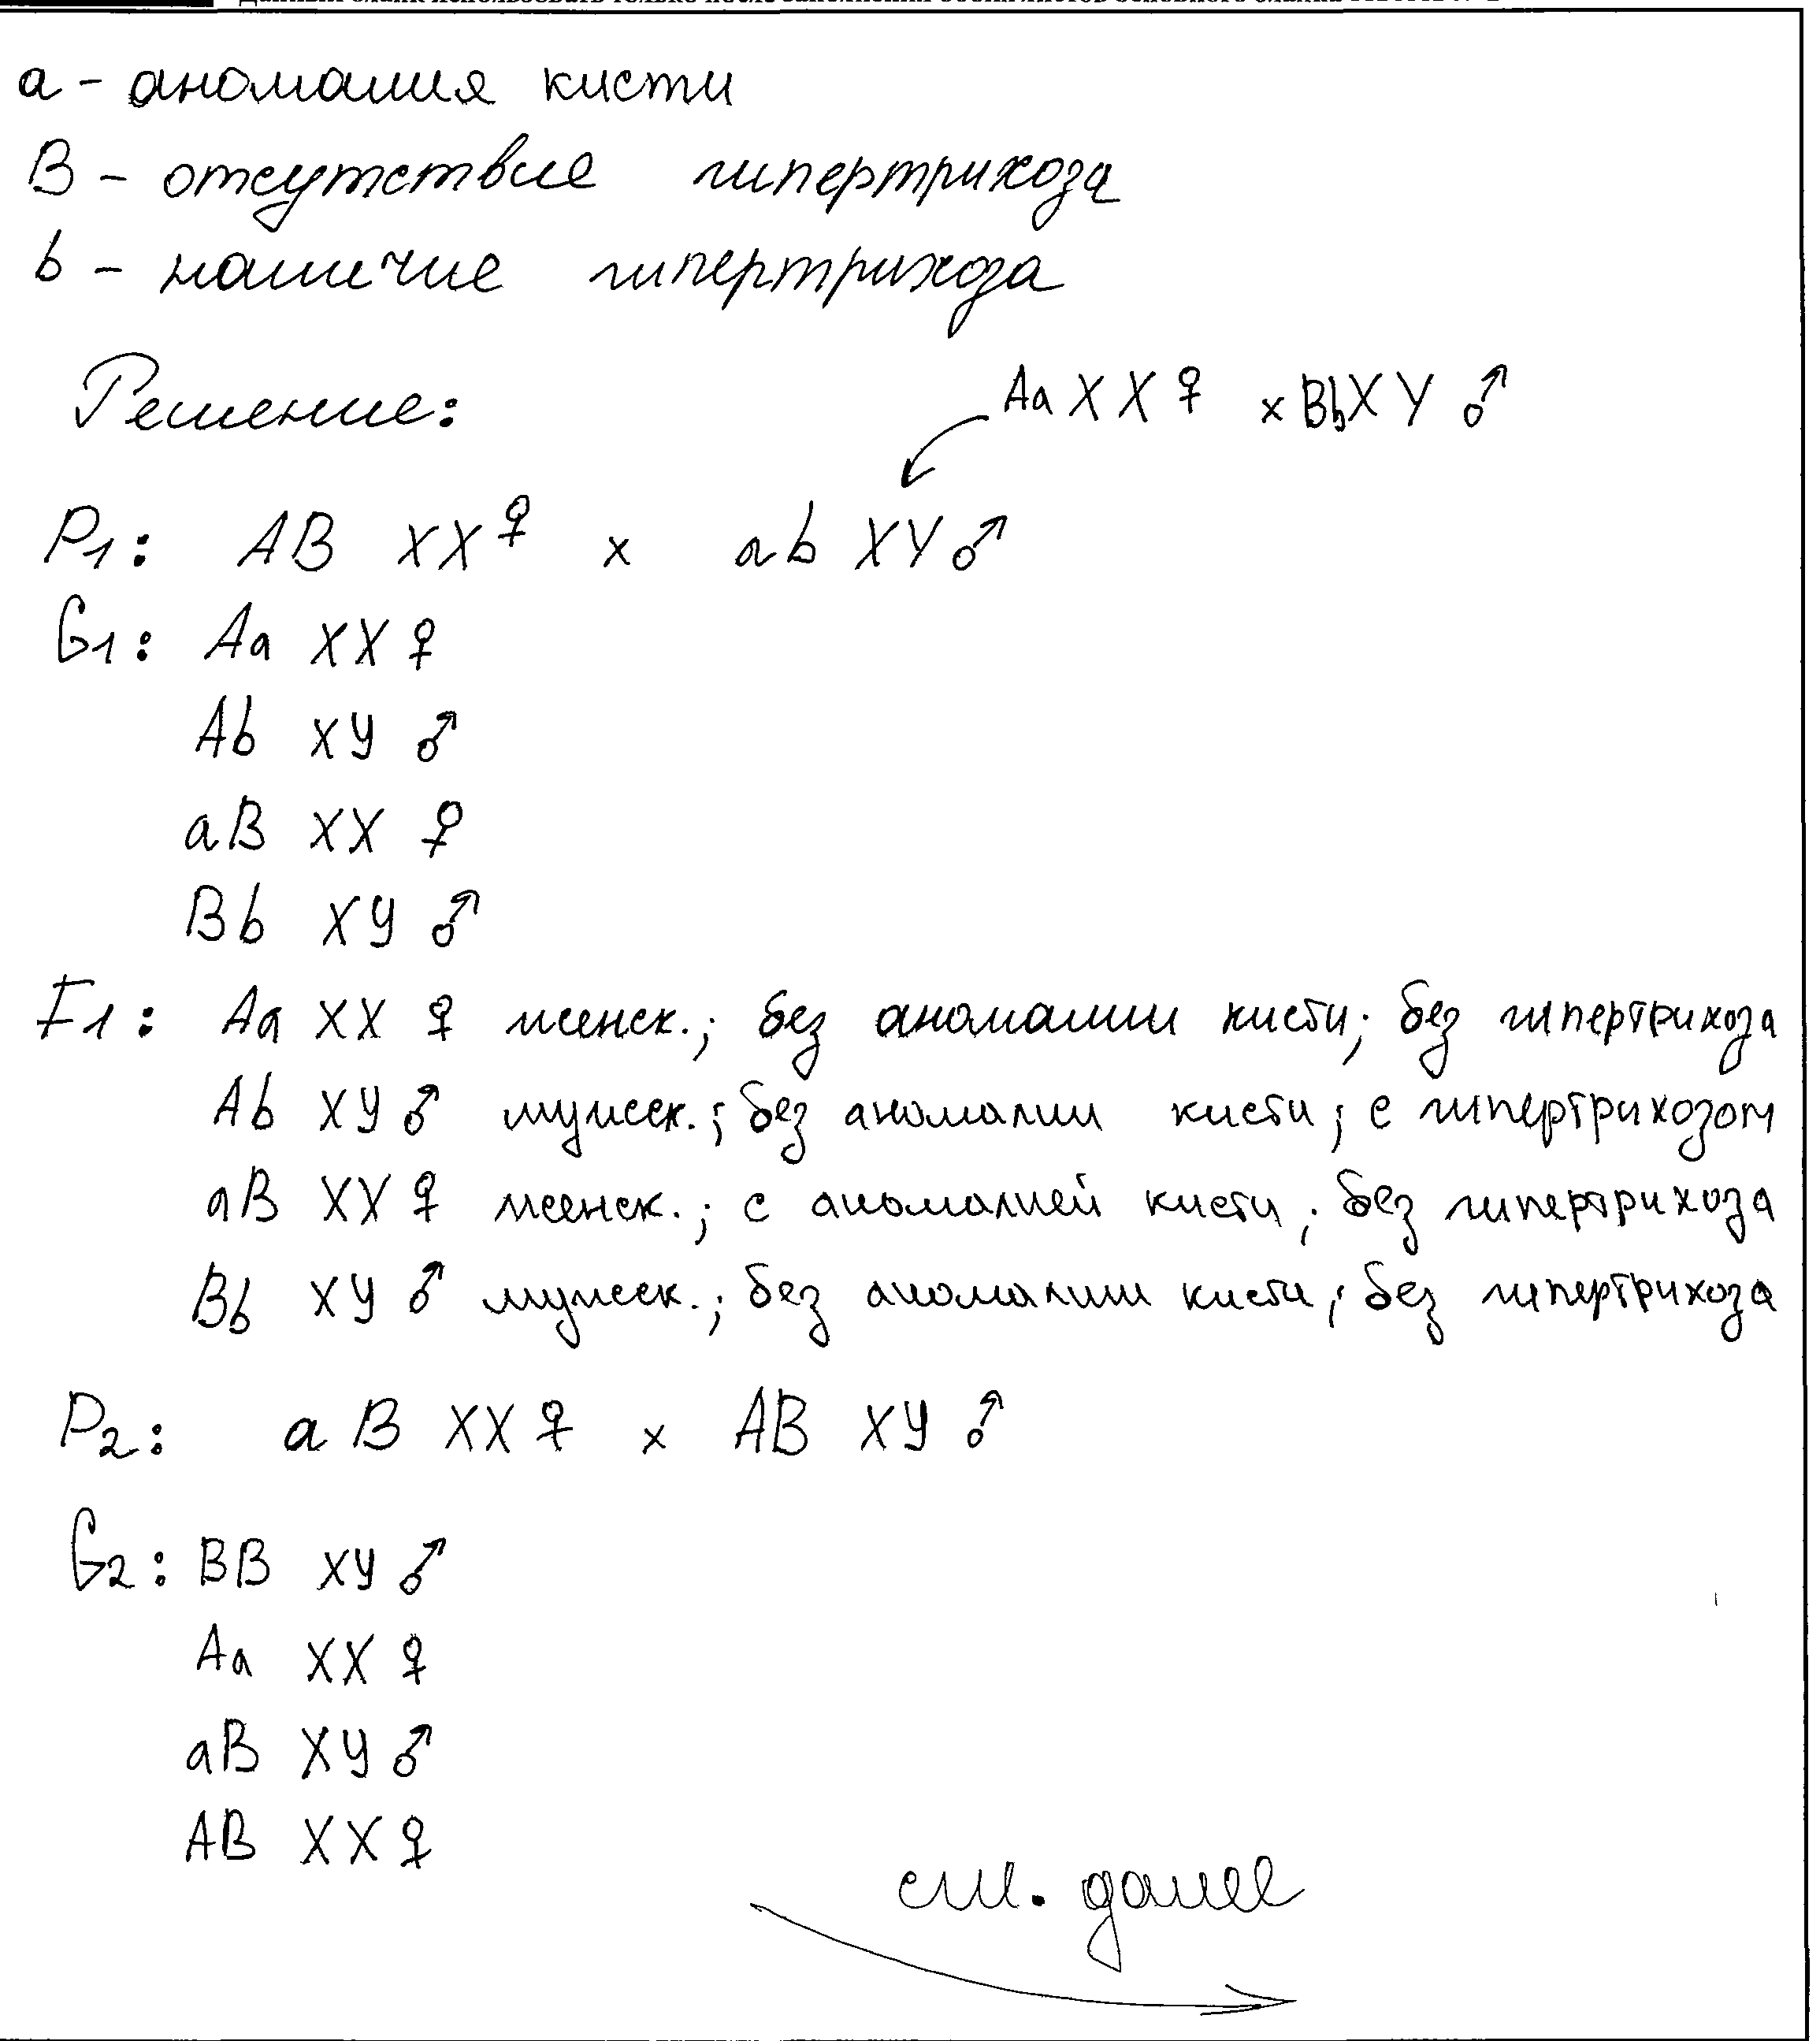 а - аномалия кисти
B - отсутствие гипертрихоза
b - наличие гипертрихоза
Решение:
Aa X X ♀ x Bb X Y ♂
P1: AB XX ♀ x ab XY ♂
G1: Aa XX ♀
Ab XY ♂
aB XX ♀
Bb XY ♂
F1: Aa XX ♀ женск.; без аномалии кисти; без гипертрихоза
Ab XY ♂ мужск.; без аномалии кисти; с гипертрихозом
aB XX ♀ женск.; с аномалией кисти; без гипертрихоза
Bb XY ♂ мужск.; без аномалии кисти; без гипертрихоза
P2: aB XX ♀ x AB XY ♂
G2: BB XY ♂
Aa XX ♀
aB XY ♂
AB XX ♀
см. далее